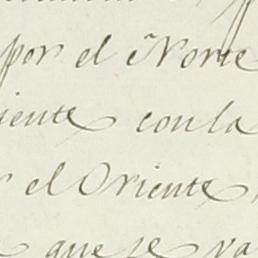 por el Norte
iente con la
el Oriente
que se va